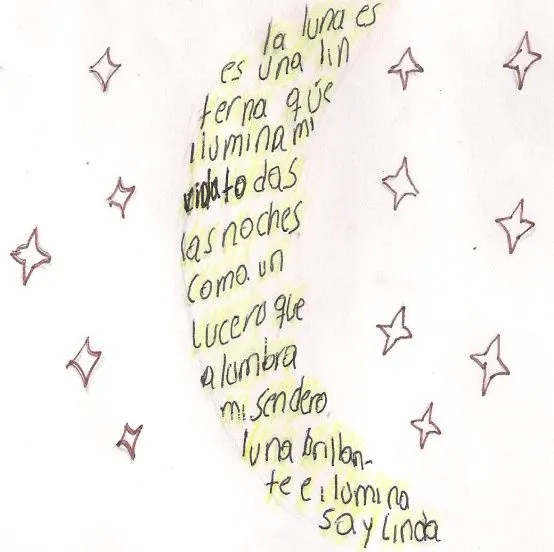 la luna es
es una lin
terna qúe
ilumina mi
vida todas
las noches
como.un
lucero que
alumbra
mi sendero.
luna brillan-
te e ilumina
sa y linda